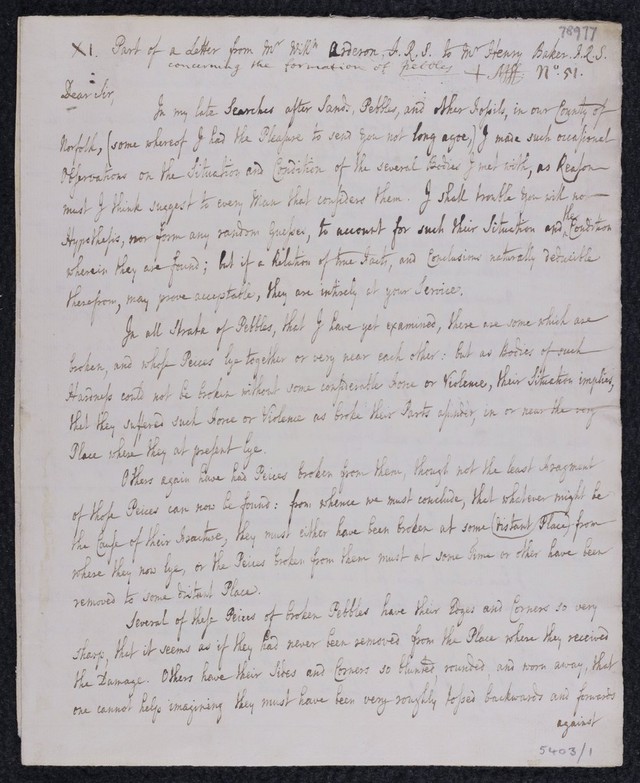 78977
XI. Part of a Letter from Mr. Willm. Arderon F.R.S. to Mr. Henry Baker F.R.S.
concerning the formation of Pebbles + MSS No. 51.
Dear Sir,
In my late Searches after Sands, Pebbles, and other Fossils, in our County of
Norfolk, (some whereof I had the Pleasure to send you not long agoe,) I made such occasional
Observations on the Situation and Condition of the several Bodies I met with, as Reason
must I think suggest to every Man that considers them. I shall trouble You with no
Hypothesis, nor form any random Guesses, to account for such their Situation and the Condition
wherein they are found; but if a Relation of true Facts, and Conclusions naturally deducible
therefrom, may prove acceptable, they are intirely at your Service.
In all Strata of Pebbles, that I have yet examined, there are some which are
broken, and whose Peices lye together or very near each other: but as Bodies of such
Hardness could not be broken without some considerable Force or Violence, their Situation implies,
that they suffered such Force or Violence as broke their Parts asunder, in or near the very
Place where they at present lye.
Others again have had Peices broken from them, though not the least Fragment
of those Peices can now be found: from whence we must conclude, that whatever might be
the Cause of their Fracture, they must either have been broken at some (distant Place) from
where they now lye, or the Peices broken from them must at some Time or other have been
removed to some distant Place.
Several of these Peices of broken Pebbles have their Edges and Corners so very
sharp, that it seems as if they had never been removed from the Place where they received
the Damage. Others have their Sides and Corners so blunted, rounded, and worn away, that
one cannot help imagining they must have been very roughly tossed backwards and forwards
against
5403/1